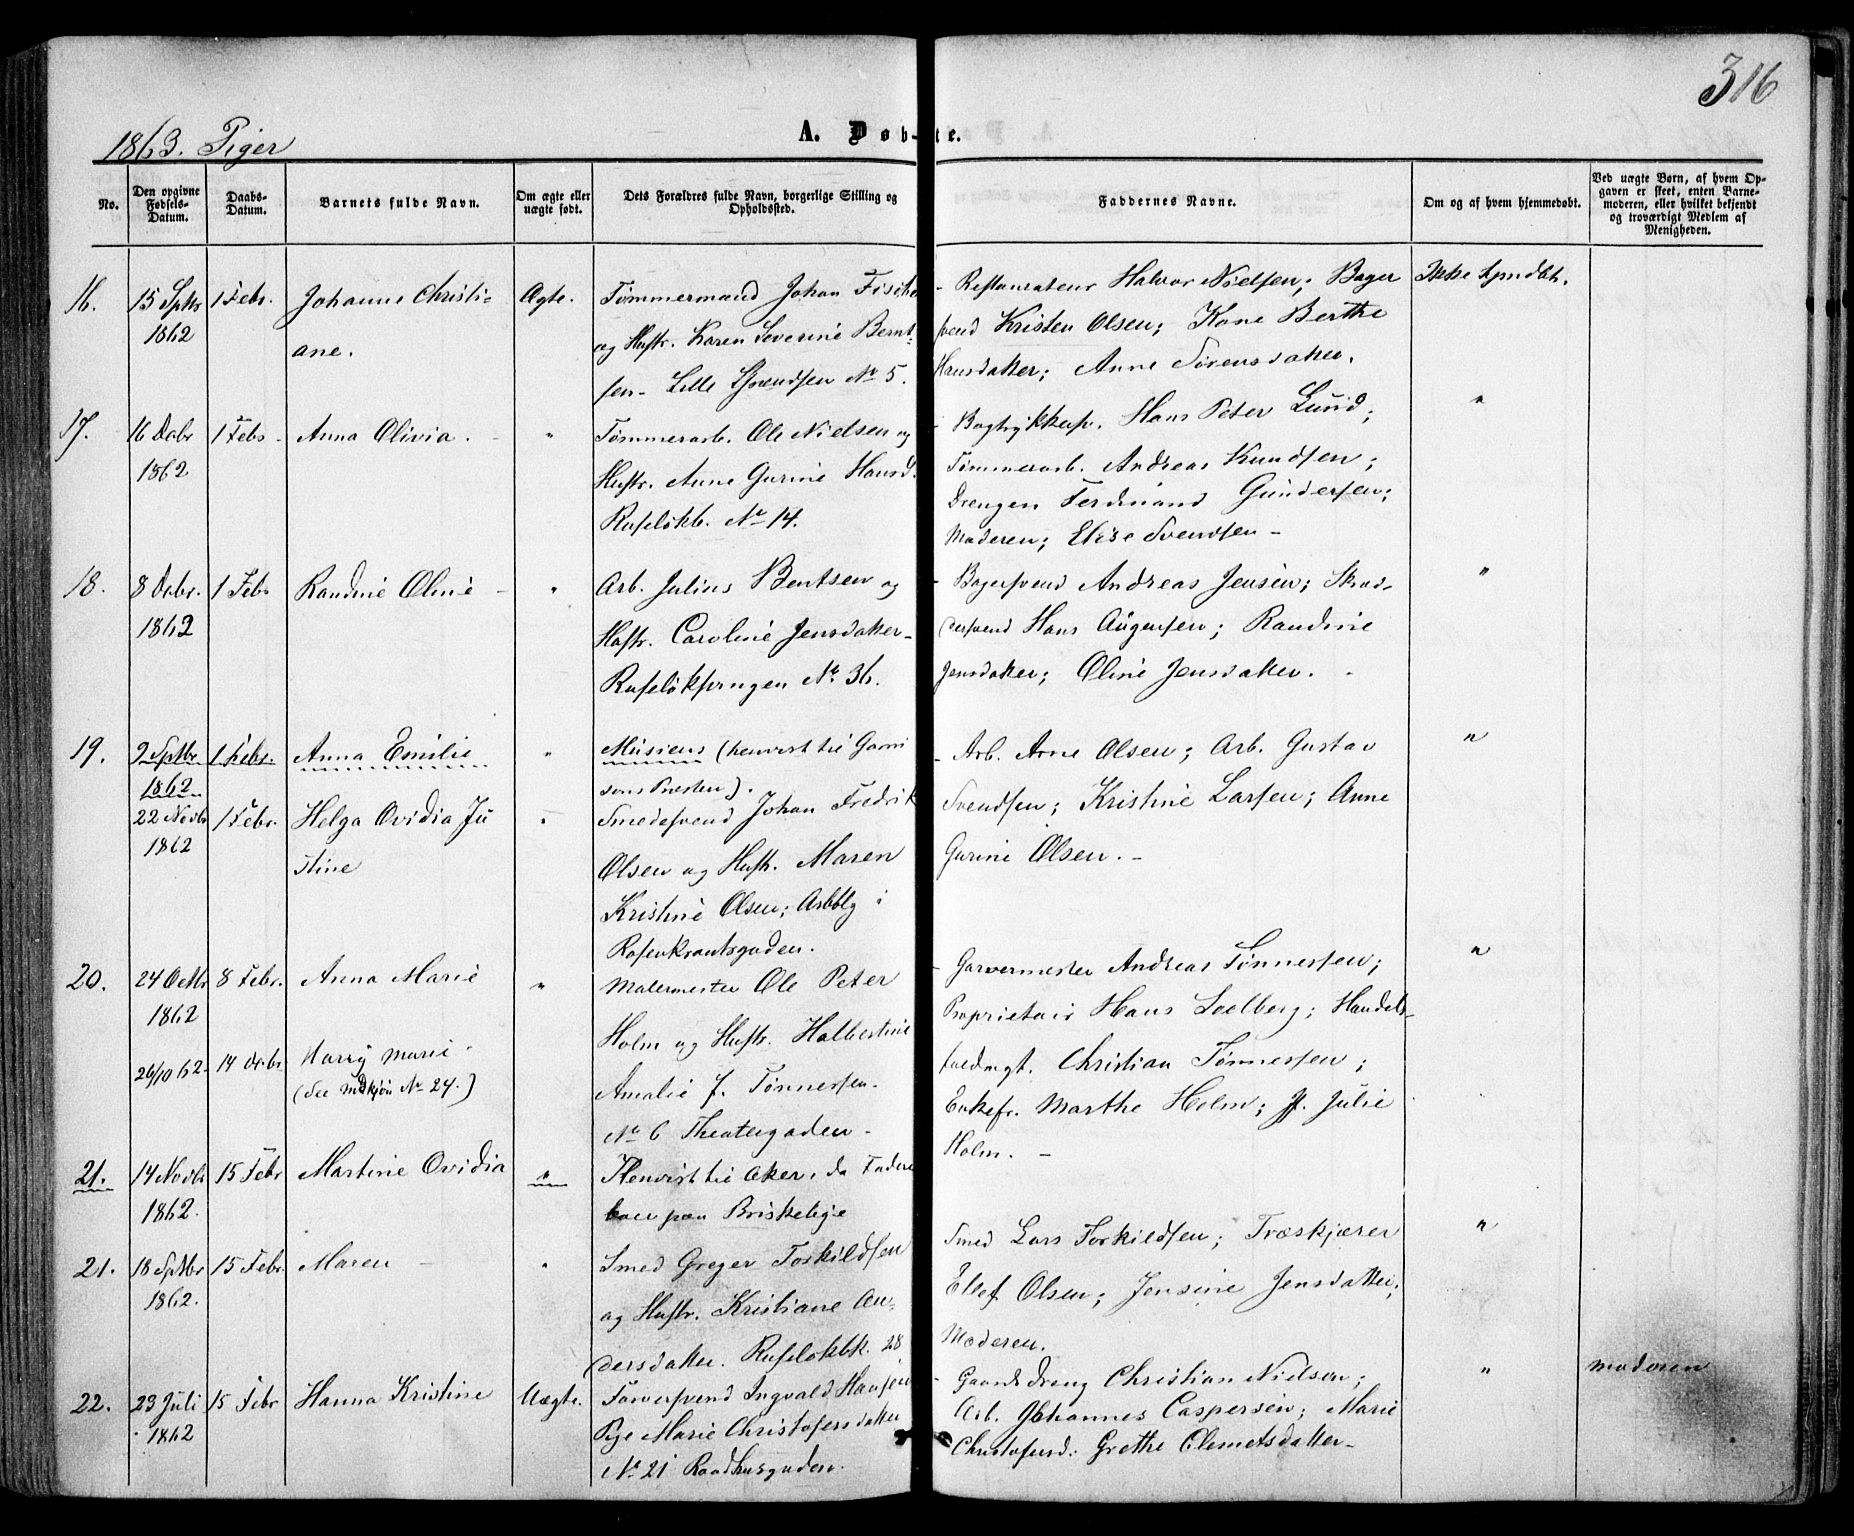 316
1863. Piger
A. Døb-te.
No.
Den opgivne Fødsels-Datum.
Daabs-Datum.
Barnets fulde Navn.
Om ægte eller uægte født.
Dets Forældres fulde Navn, borgerlige Stilling og Opholdssted.
Faddernes Navne.
Om og af hvem hjemmedøbt.
Ved uægte Børn, af hvem Opgaven er skeet, enten Barnemoderen, eller hvilket bekjendt og troværdigt Medlem af Menigheden.
16.
15 Sptbr 1862
1 Febr.
Johanne Christi-
ane.
Ægte.
Tømmermand Johan Fische
og Hustr. Karen Severine Bernt-
sen - Lille Grændsen No 5.
- Restaurateur Halvor Nielsen; Bager
svend Kristen Olsen; Kone Berthe
Hansdatter; Anne Sørensdatter.
Ikke hjmdbt.
17.
16 Dcbr 1862
1 Febr
Anna Olivia.
"
Tømmerarb. Ole Nielsen og
Hustr. Anne Gurine Hansd.
Ruseløkb. No 14.
- Bogtrykkersv. Hans Peter Lund;
Tømmerarb. Andreas Knudsen;
Drengen Ferdinand Gundersen;
Moderen; Elise Svendsen -
"
18.
8 Dcbr. 1862
1 Febr
Randine Oline
"
Arb. Julius Bentsen og
Hustr. Caroline Jensdatter -
Ruseløk No 36.
- Bagersvend Andreas Jensen; Skræd-
dersvend Hans Augensen; Randine
Jensdatter; Oline Jensdatter.
"
19.
9 Sptbr. 1862
1 Febr.
Anna Emilie
"
Musicus (henvist til Garni
sons Præsten).
22 Novbr 1862
1 Febr.
Helga Ovidia Ju
stine
"
Smedesvend Johan Fredrik
Olsen og Hustr. Maren
Kristine Olsen; Arbblg i
Rosenkrantsgaden.
- Arb. Arne Olsen; Arb. Gustav
Svendsen; Kristine Larsen; Anne
Gurine Olsen. -
"
20.
24 Octbr 1862
8 Febr.
Anna Marie
"
Malermester Ole Peter
Holm og Hustr. Halbertine
Amalie f. Tønnersen -
No 6 Theatergaden -
- Garvermester Andreas Tønnersen;
Proprietair Hans Seelberg; Handels-
fuldmgt. Christian Tønnersen;
Enkefr. Marthe Holm; Jf. Julie
Holm. -
"
26/10 62.
14 Dcbr
Harry Marie
(see Mdkjøn No 24.)
21.
14 Novbr 1862.
15 Febr
Martine Ovidia
"
Henvist til Aker, da Fadere
boer paa Briskebye
21.
18 Sptbr 1862.
15 Febr.
Maren
"
Smed Greger Torkildsen
og Hustr. Kristiane An-
dersdatter. Ruseløkbk. 28
Smed Lars Torkildsen; Træskjærer
Ellef Olsen; Jensine Jensdatter;
Moderen.
"
22.
23 Juli 1862
15 Febr
Hanna Kristine
Uægte.
Farversvend Ingvald Hansen
Pige Marie Christofersdatter
No 21 Raadhusgaden.
- Gaardsdreng Christian Nielsen;
Arb. Johannes Caspersen; Marie
Christofersd: Grethe Clemetsdatter -
"
moderen